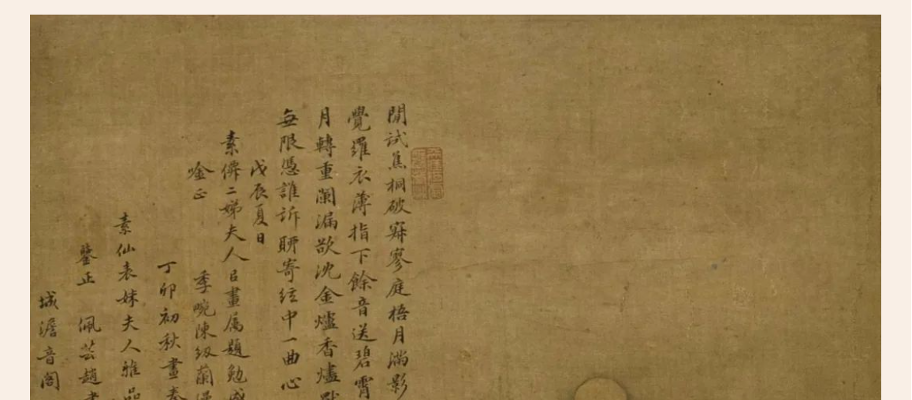 閒試蕉桐破寂寥庭梧月滿影
覺羅衣薄指下餘音送碧霄
月轉重闌漏欲沈金爐香燼
無限憑誰訴聊寄絃中一曲心
戊辰夏日
素僊二娣夫人以畫屬題勉成
唫正
季畹陳級蘭
丁卯初秋畫奉
素仙表妹夫人雅品
鑒正
佩芸趙
城澹音閣